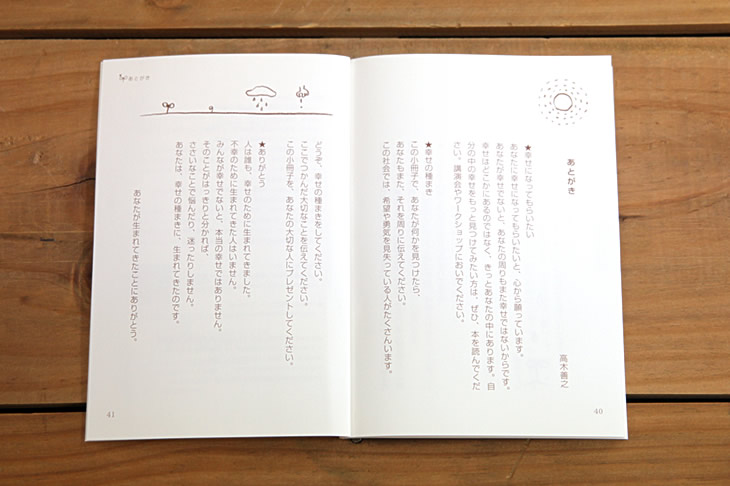 あとがき
高木善之
★幸せになってもらいたい
あなたに幸せになってもらいたいと、心から願っています。
あなたが幸せでないと、あなたの周りもまた幸せではないからです。
幸せはどこかにあるのではなく、きっとあなたの中にあります。自
分の中の幸せをもっと見つけてみたい方は、ぜひ、本を読んでくだ
さい。講演会やワークショップにおいでください。
★幸せの種まき
この小冊子で、あなたが何かを見つけたら、
あなたもまた、それを周りに伝えてください。
この社会では、希望や勇気を見失っている人がたくさんいます。
40
あとがき
どうぞ、幸せの種まきをしてください。
ここでつかんだ大切なことを伝えてください。
この小冊子を、あなたの大切な人にプレゼントしてください。
★ありがとう
人は誰も、幸せのために生まれてきました。
不幸のために生まれてきた人はいません。
みんなが幸せでないと、本当の幸せではありません。
そのことがはっきりと分かれば、
ささいなことで悩んだり、迷ったりしません。
あなたは、幸せの種まきに、生まれてきたのです。
あなたが生まれてきたことにありがとう。
41